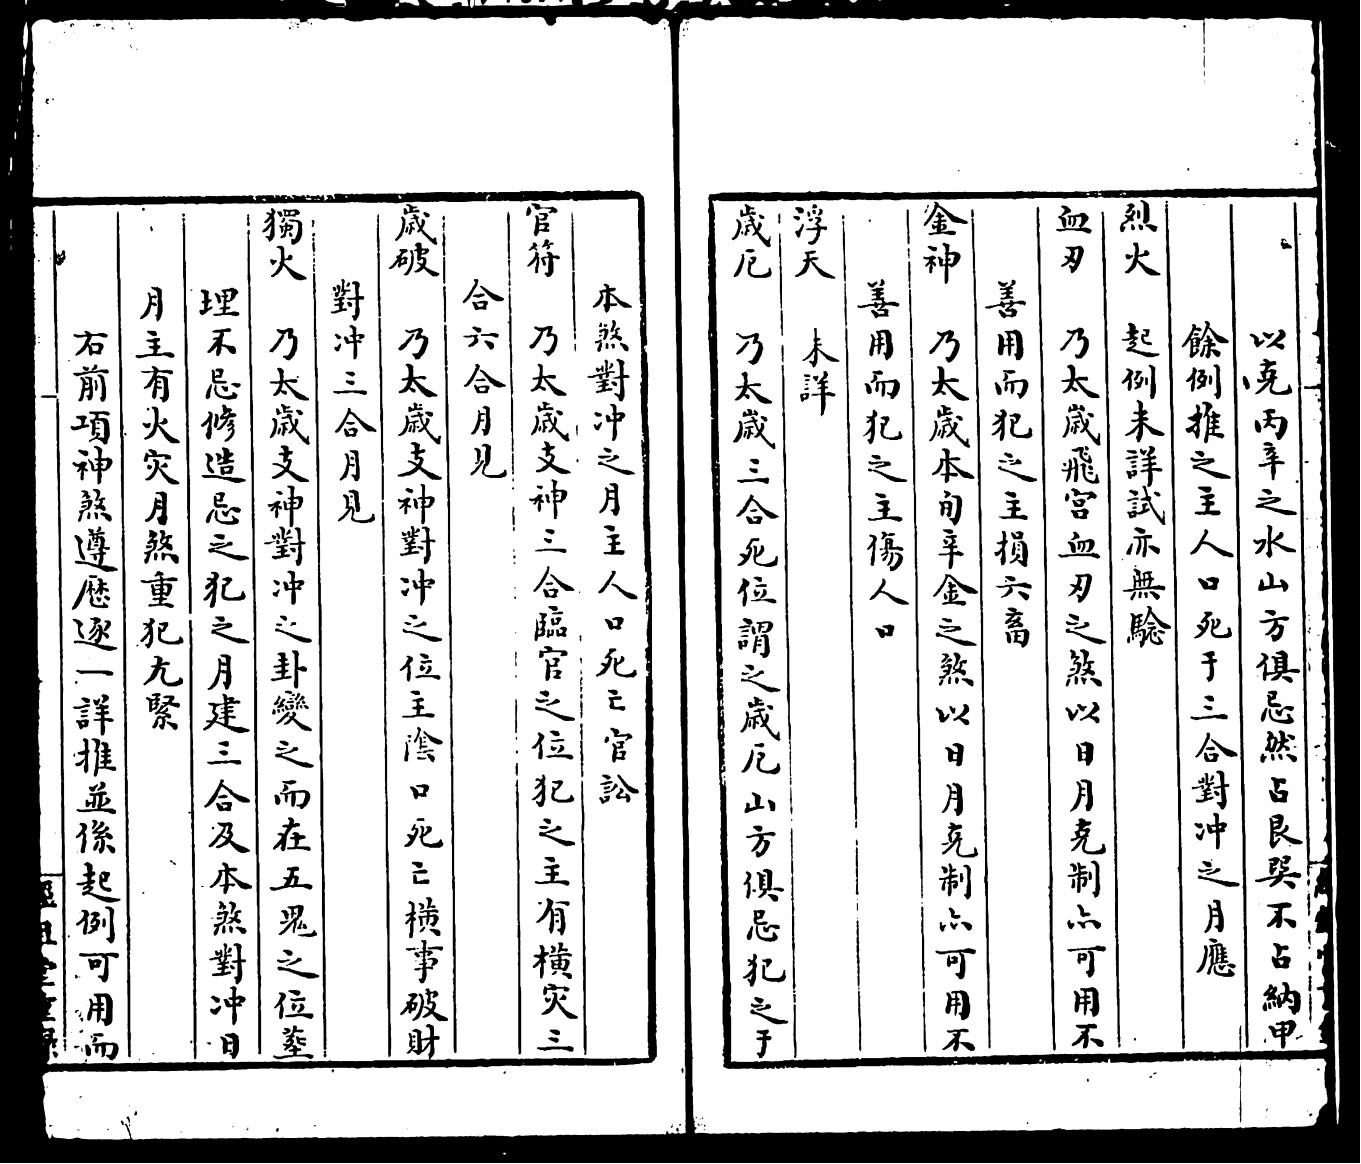 以尅丙辛之水山方俱忌然占艮巽不占納甲
餘例推之主人口死于三合對冲之月應
烈火　起例未詳試亦無驗
血刃　乃太歲飛宮血刃之煞以日月尅制亦可用不
善用而犯之主損六畜
金神　乃太歲本旬辛金之煞以日月尅制亦可用不
善用而犯之主傷人口
浮天　未詳
歲厄　乃太歲三合死位謂之歲厄山方俱忌犯之于
本煞對冲之月主人口死亡官訟
官符　乃太歲支神三合臨官之位犯之主有横灾三
合六合月見
歲破　乃太歲支神對冲之位主陰口死亡横事破財
對冲三合月見
獨火　乃太歲支神對冲之卦變之而在五鬼之位塟
理不忌修造忌之犯之月建三合及本煞對冲日
月主有火灾月煞重犯尤緊
右前項神煞遵歷逐一詳推並係起例可用而